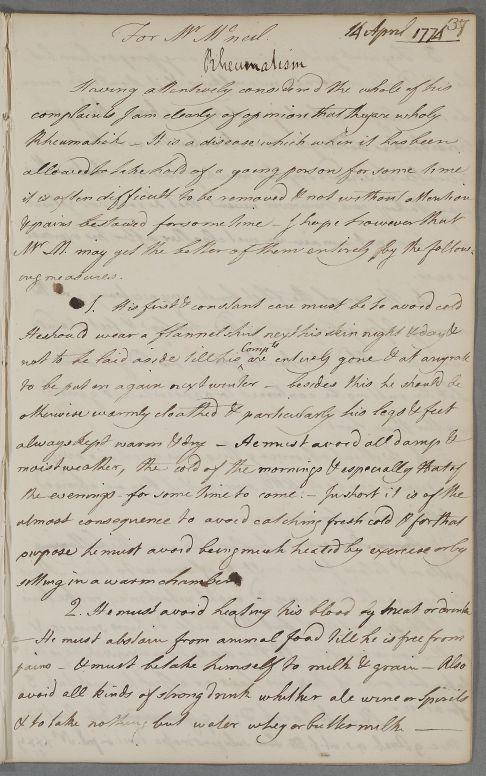 For Mr. Mcneil. 14 April 1774 37
Rheumatism
Having attentively considered the whole of his
complaints I am clearly of opinion that they are wholy
Rheumatick – It is a disease which when it has been
allowed to take hold of a young person for some time
it is often difficult to be removed & not without attention
& pains bestowed for some time – I hope however that
Mr. M. may get the better of them entirely by the follow-
ing measures.
1. His first & constant care must be to avoid cold
He should wear a flannel shirt next his skin night & day &
not to be laid aside till his Compts are entirely gone & at anyrate
to be put on again next winter – besides this he should be
otherwise warmly cloathed & particularly his legs & feet
always kept warm & dry – He must avoid all damp &
moist weather, the cold of the mornings & especially that of
the evenings for some time to come – In short it is of the
utmost consequence to avoid catching fresh cold & for that
purpose he must avoid being much heated by exercise or by
sitting in a warm chamber
2. He must avoid heating his blood by meat or drink
– He must abstain from animal food till he is free from
pains – & must betake himself to milk & grain – Also
avoid all kinds of strong drink whether ale wine or spirits
& to take nothing but water whey or butter milk –